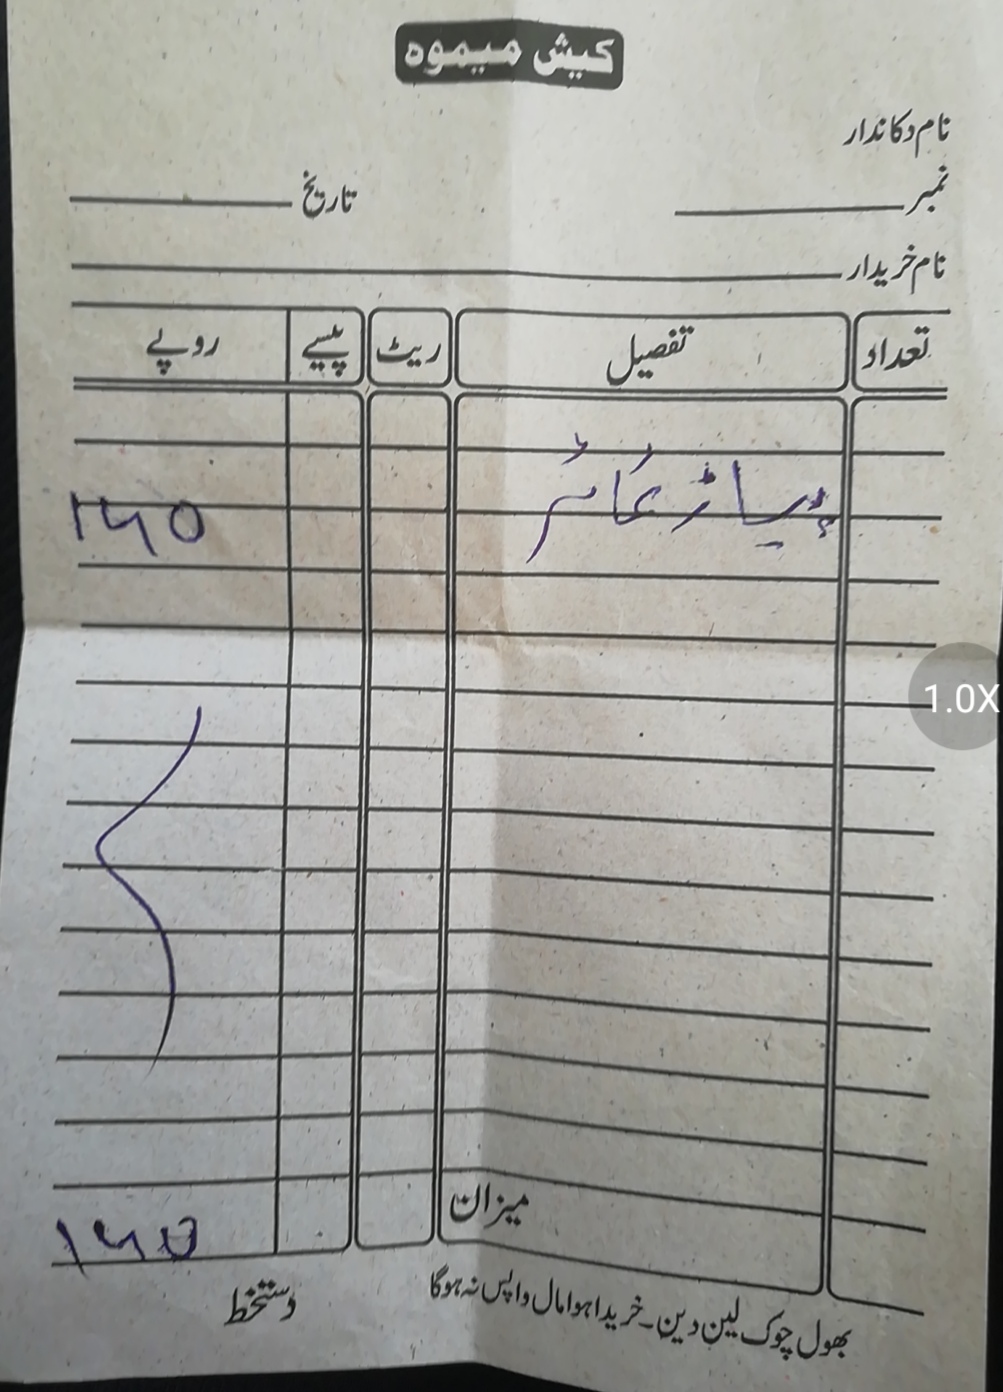 کیش میموہ
نام دکاندار
نمبر تاریخ
نام خریدار
تعداد تفصیل ریٹ پیسے روپے
میزان
بھول چوک لین دین۔ خریدا ہوا مال واپس نہ ہوگا
دستخط
1.0X